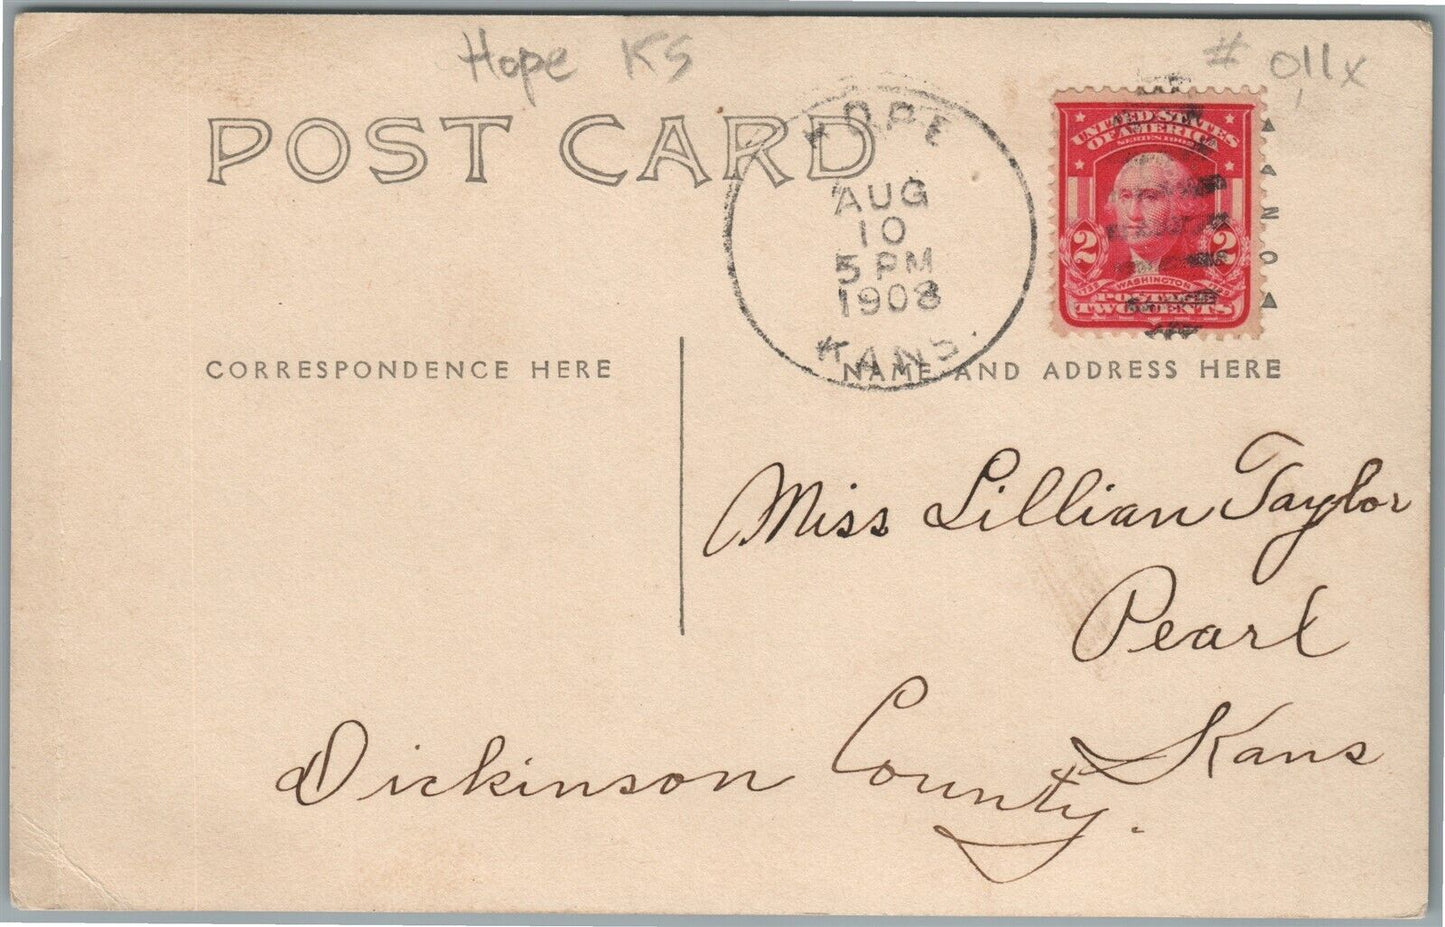 Hope KS
# 011x
POST CARD
HOPE
AUG
10
5 PM
1908
KANS.
UNITED STATES
OF AMERICA
SERIES 1902
2 2
WASHINGTON
POSTAGE
TWO CENTS
NOV
CORRESPONDENCE HERE
NAME AND ADDRESS HERE
Miss Lillian Taylor
Pearl
Kans
Dickinson County.